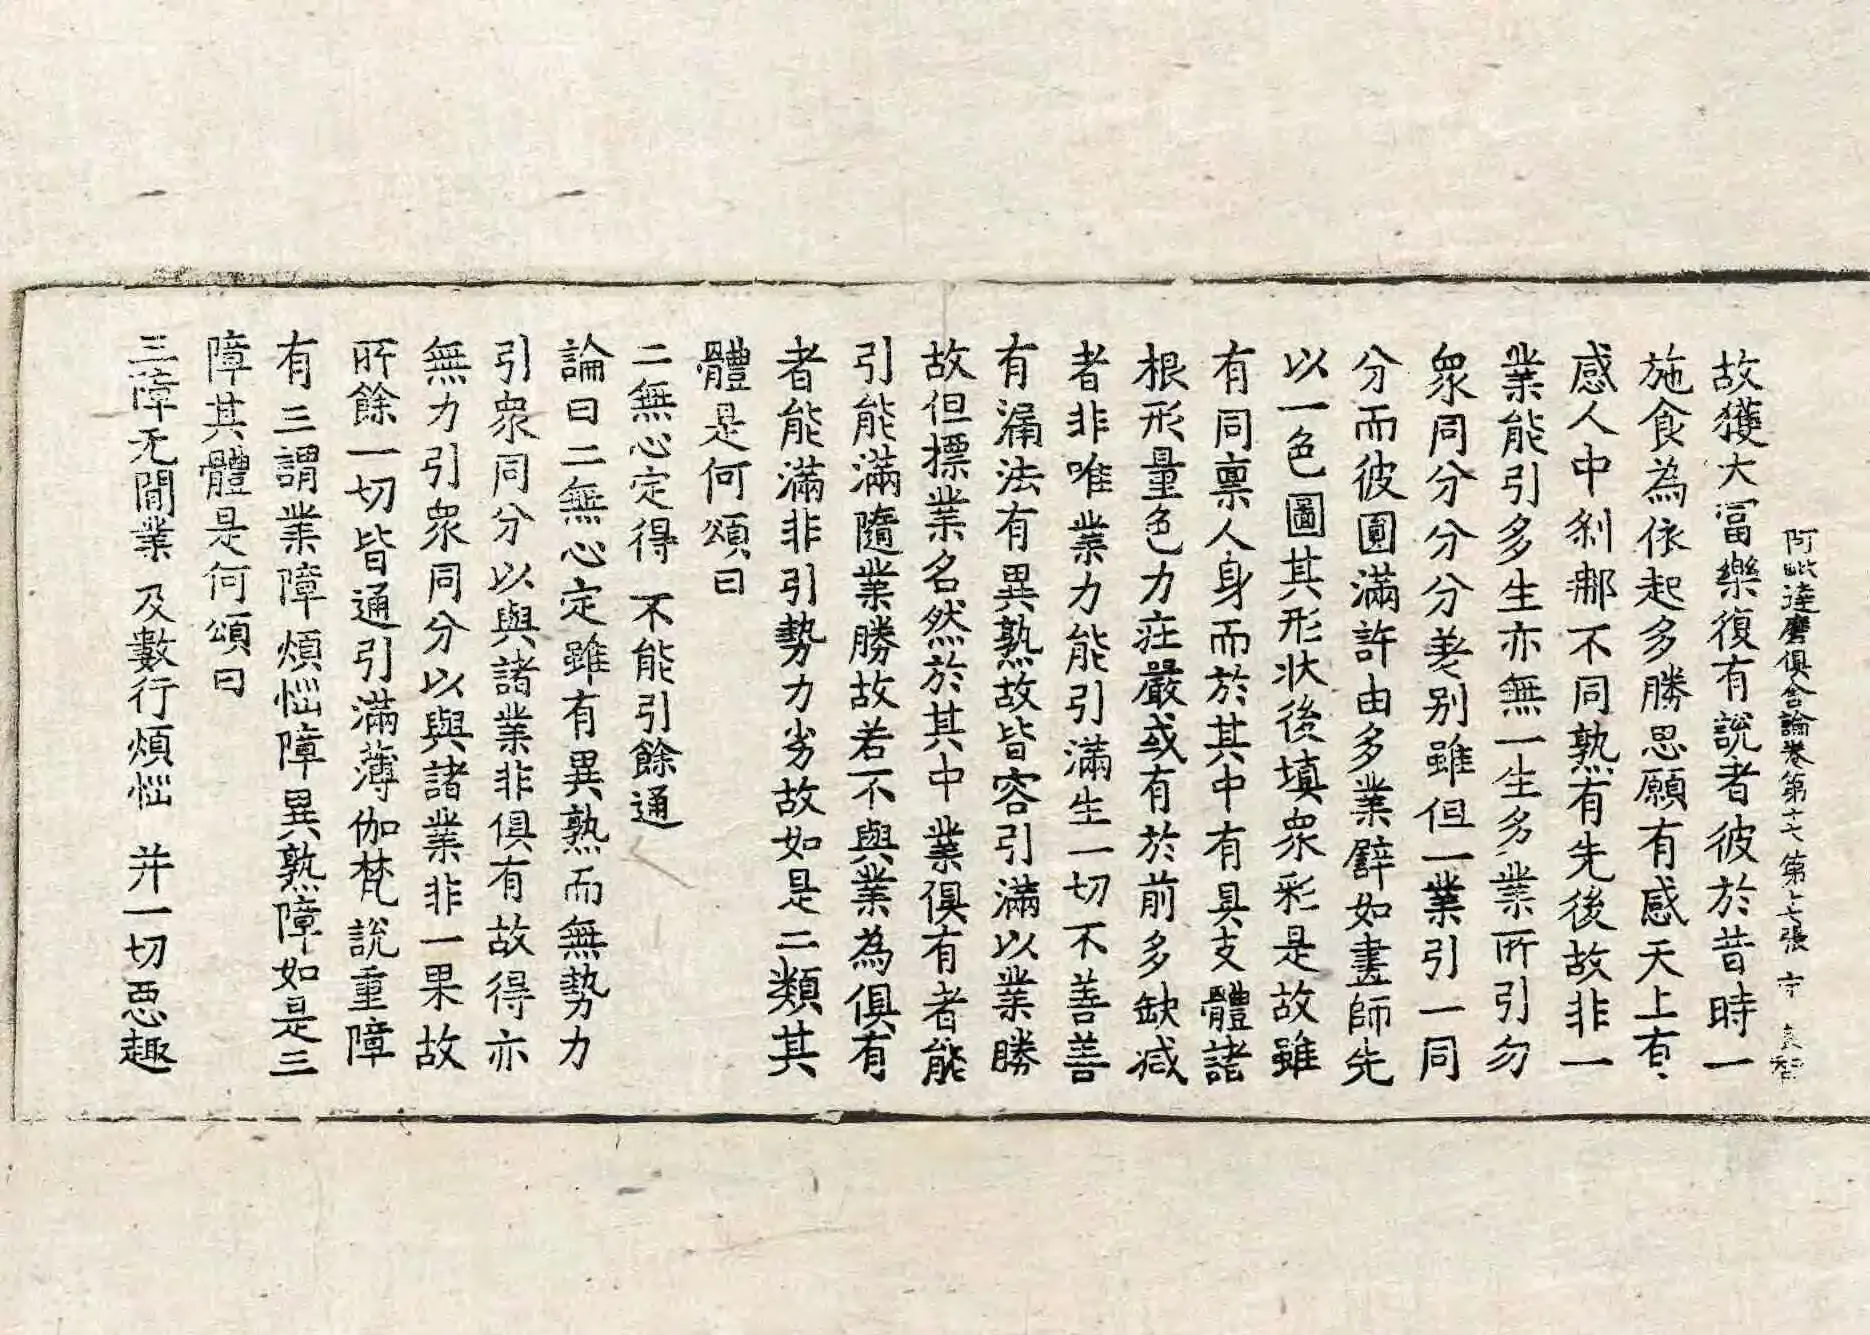 阿毗達磨俱舍論卷第十七 第十七張 守
故獲大冨樂復有說者彼於昔時一
施食為依起多勝思願有感天上有
感人中剎那不同熟有先後故非一
業能引多生亦無一生多業所引勿
衆同分分分差别雖但一業引一同
分而彼圓滿許由多業譬如畫師先
以一色圖其形狀後填衆彩是故雖
有同禀人身而於其中有具支體諸
根形量色力莊嚴或有於前多缺减
者非唯業力能引滿生一切不善善
有漏法有異熟故皆容引滿以業勝
故但摽業名然於其中業俱有者能
引能滿隨業勝故若不與業為俱有
者能滿非引勢力劣故如是二類其
體是何頌曰
二無心定得 不能引餘通
論曰二無心定雖有異熟而無勢力
引衆同分以與諸業非俱有故得亦
無力引衆同分以與諸業非一果故
所餘一切皆通引滿薄伽梵說重障
有三謂業障煩惱障異熟障如是三
障其體是何頌曰
三障无閒業 及數行煩惱 并一切惡趣